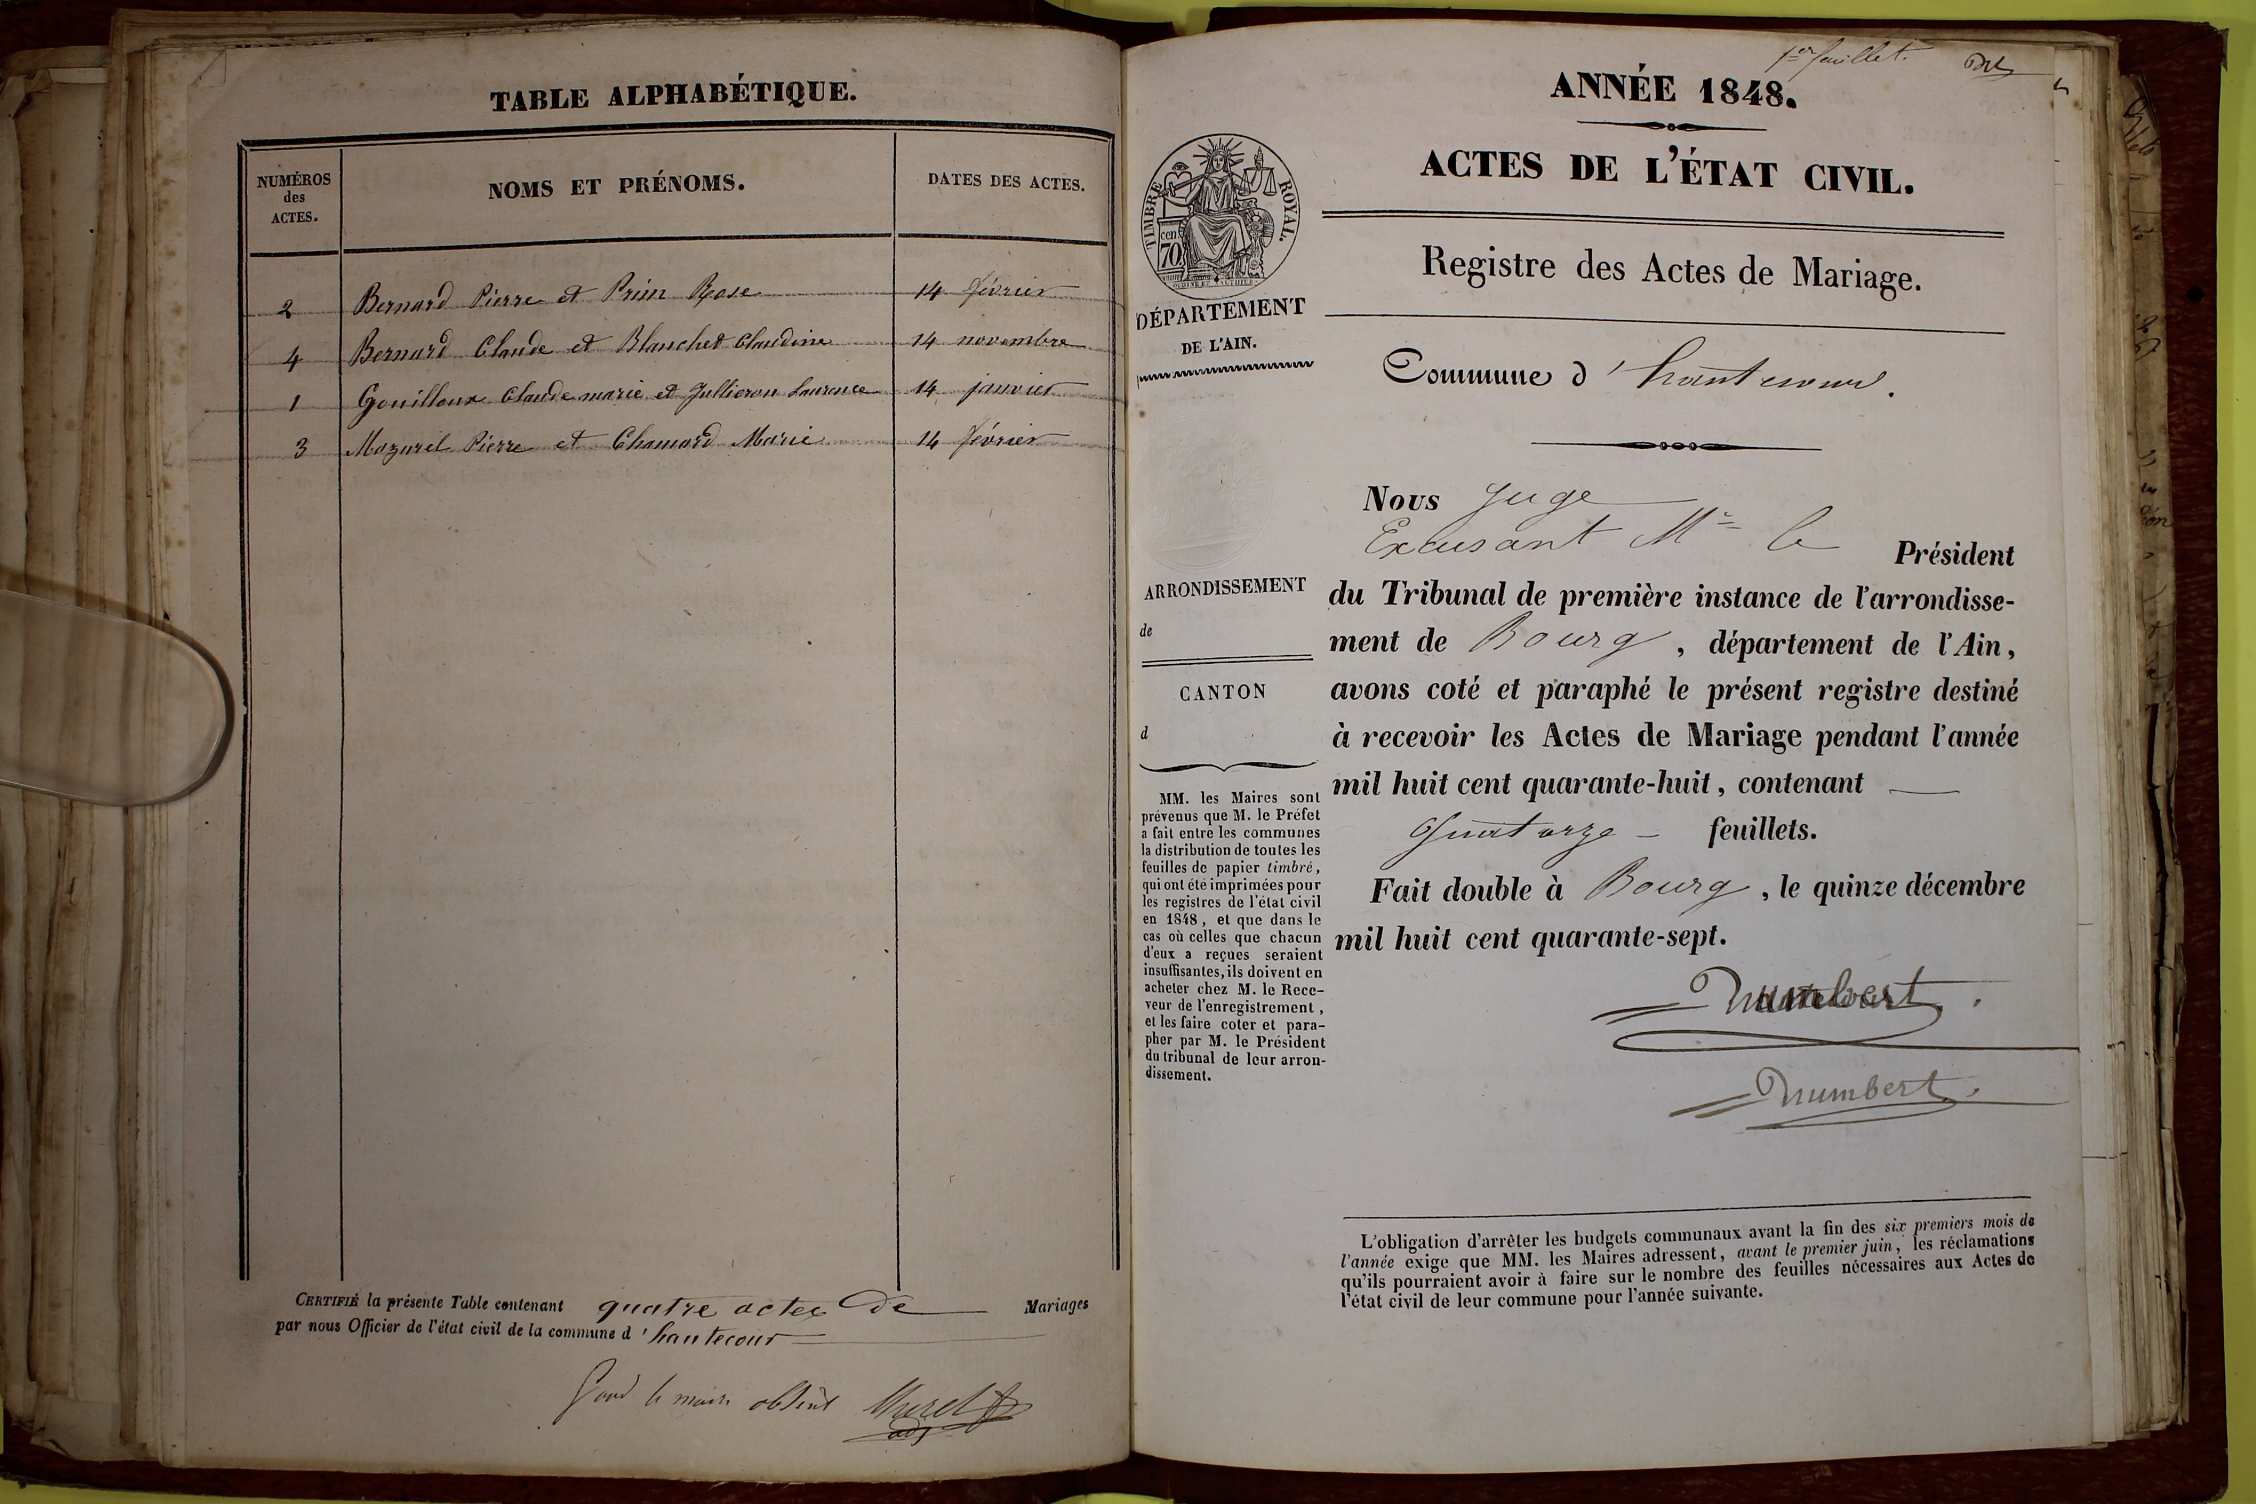 TABLE ALPHABÉTIQUE.
NUMÉROS
des
ACTES.
NOMS ET PRÉNOMS.
DATES DES ACTES.
2 Bernard Pierre et Prin Rose 14 février
4 Bernard Claude et Blanchet Claudine 14 novembre
1 Gouilloux Claude marie et Jullieron Laurence 14 janvier
3 Mazurel Pierre et Chamard Marie 14 février
CERTIFIÉ la présente Table contenant quatre actes de Mariages
par nous Officier de l'état civil de la commune d'hautecour
Pour le maire absent
adj
1er feuillet.
ANNÉE 1848.
ACTES DE L'ÉTAT CIVIL.
Registre des Actes de Mariage.
Commune d'hautecour.
TIMBRE ROYAL.
cen
70
DÉPARTEMENT
DE L'AIN.
ARRONDISSEMENT
de
CANTON
d
MM. les Maires sont
prévenus que M. le Préfet
a fait entre les communes
la distribution de toutes les
feuilles de papier timbré,
qui ont été imprimées pour
les registres de l'état civil
en 1848, et que dans le
cas où celles que chacun
d'eux a reçues seraient
insuffisantes, ils doivent en
acheter chez M. le Rece-
veur de l'enregistrement,
et les faire coter et para-
pher par M. le Président
du tribunal de leur arron-
dissement.
Nous Juge
Excusant Mr le Président
du Tribunal de première instance de l'arrondisse-
ment de Bourg, département de l'Ain,
avons coté et paraphé le présent registre destiné
à recevoir les Actes de Mariage pendant l'année
mil huit cent quarante-huit, contenant
Quatorze feuillets.
Fait double à Bourg, le quinze décembre
mil huit cent quarante-sept.
L'obligation d'arrêter les budgets communaux avant la fin des six premiers mois de
l'année exige que MM. les Maires adressent, avant le premier juin, les réclamations
qu'ils pourraient avoir à faire sur le nombre des feuilles nécessaires aux Actes de
l'état civil de leur commune pour l'année suivante.